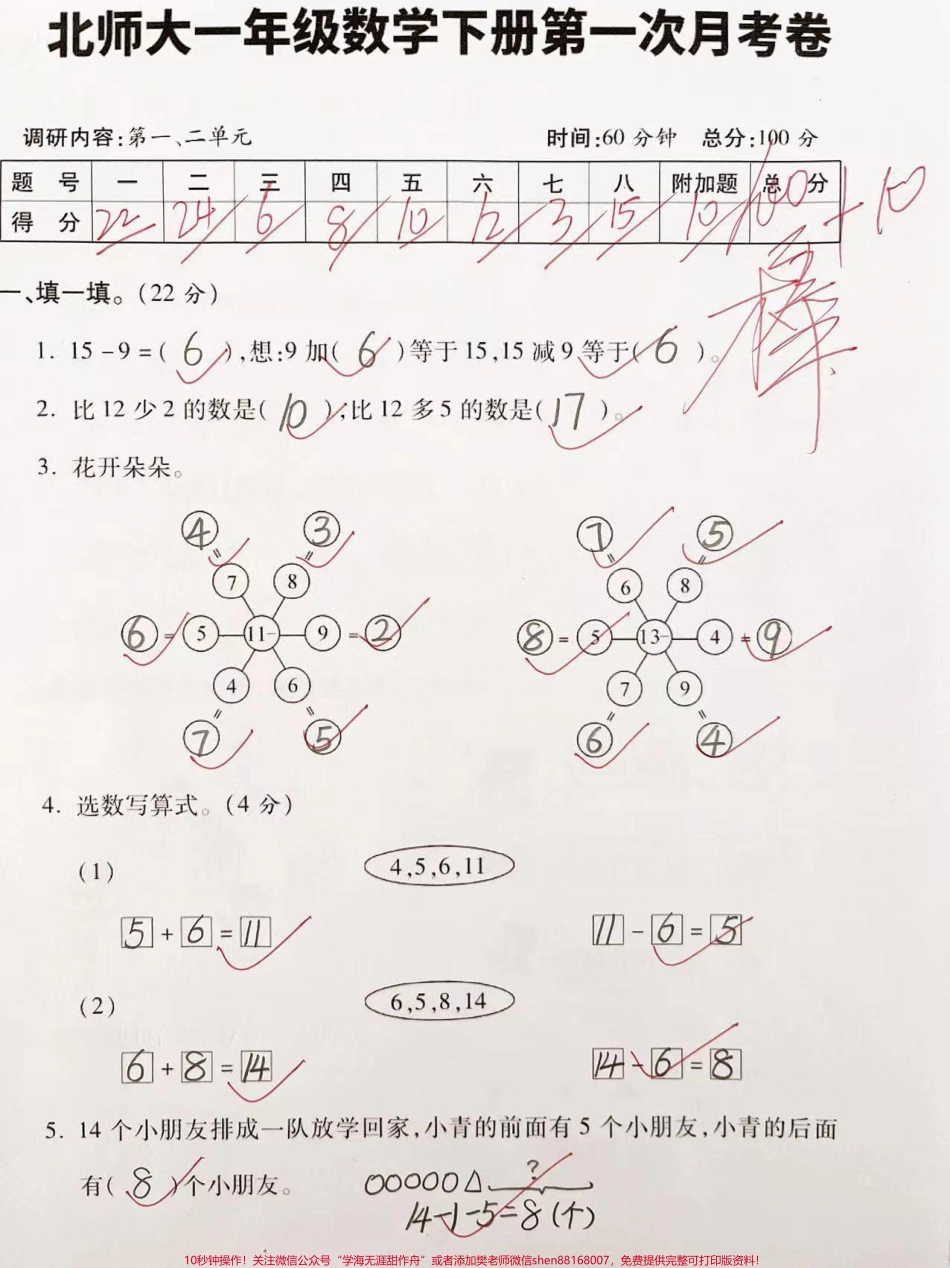 北师大一年级数学下册第一次月考卷
调研内容:第一、二单元 时间:60分钟 总分:100分
题 号 一 二 三 四 五 六 七 八 附加题 总 分
得 分 22 24 6 8 10 12 3 15 10 100+10
棒
一、填一填。(22分)
1. 15-9=( 6 ),想:9加( 6 )等于15,15减9等于( 6 )。
2. 比12少2的数是( 10 ),比12多5的数是( 17 )。
3. 花开朵朵。
4 3 7 5
7 8 6 8
6 = 5 11- 9 = 2 8 = 5 13- 4 = 9
4 6 7 9
7 5 6 4
4. 选数写算式。(4分)
(1) 4,5,6,11
5 + 6 = 11 11 - 6 = 5
(2) 6,5,8,14
6 + 8 = 14 14 - 6 = 8
5. 14个小朋友排成一队放学回家,小青的前面有5个小朋友,小青的后面
有( 8 )个小朋友。 OOOOO△ ?
14-1-5=8(个)
10秒钟操作!关注微信公众号“学海无涯甜作舟”或者添加樊老师微信shen88168007,免费提供完整可打印版资料!